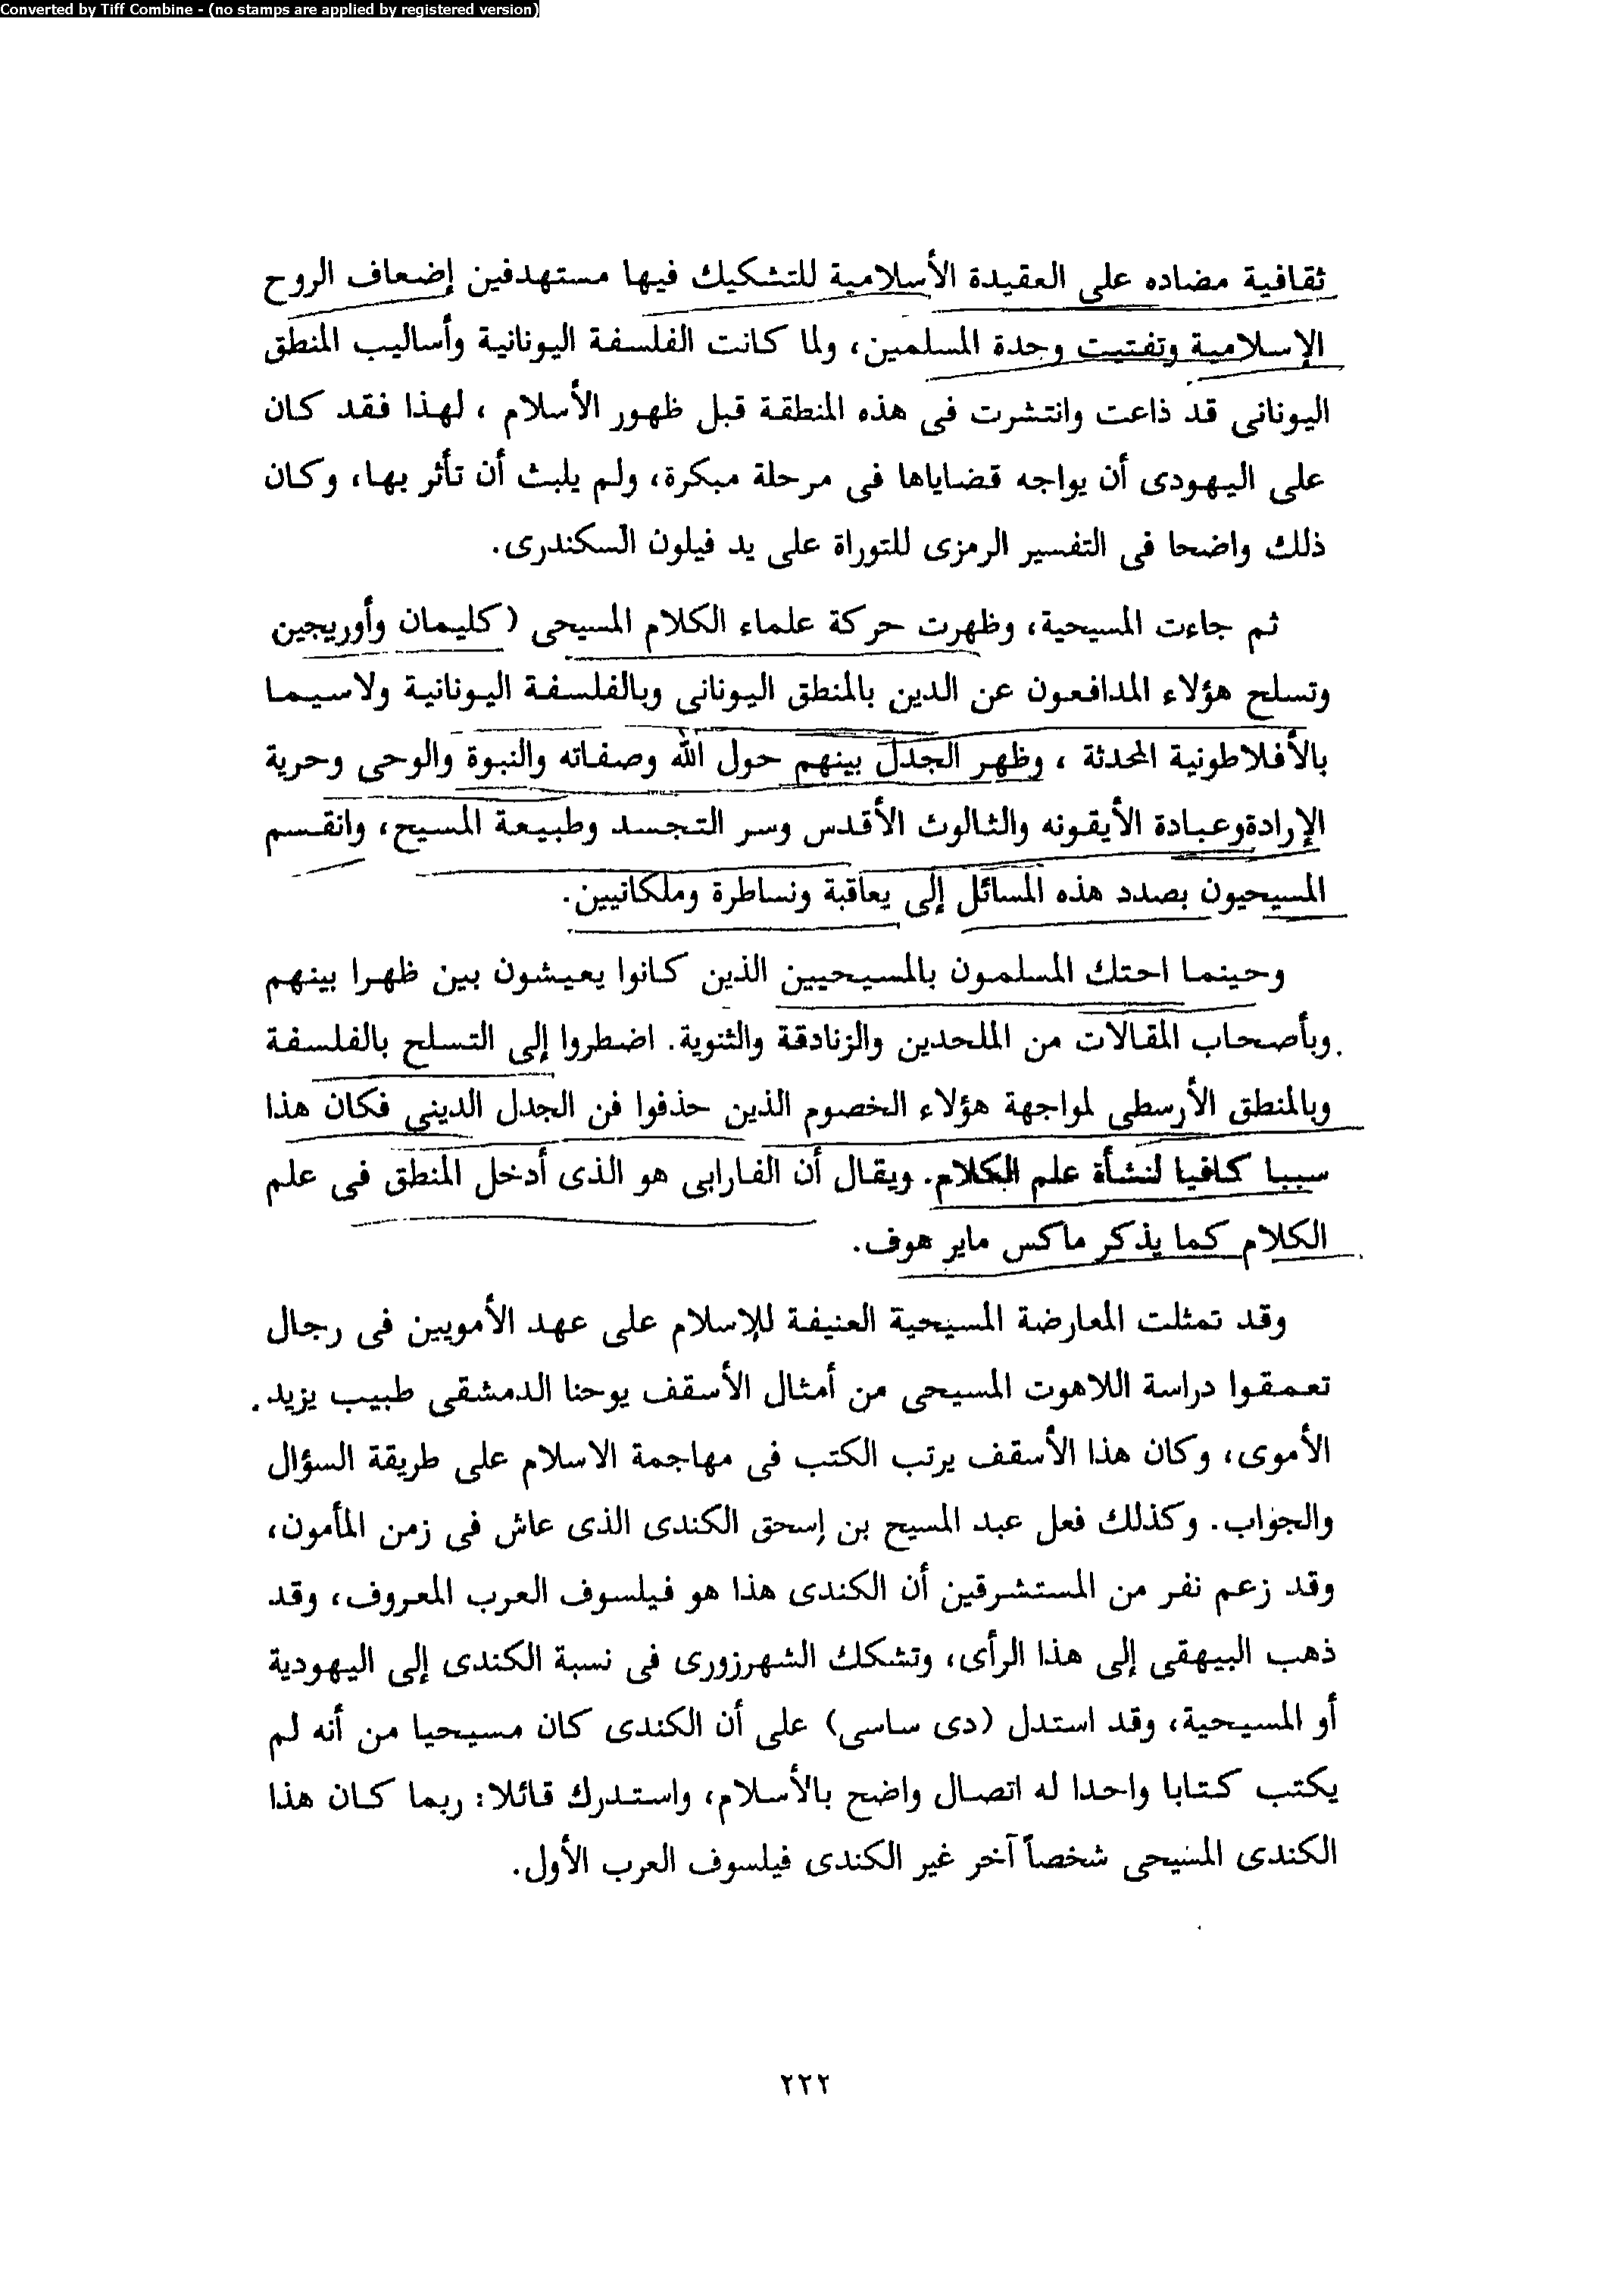 Converted by Tiff Combine - (no stamps are applied by registered version)
ثقافية مضاده على العقيدة الأسلامية للتشكيك فيها مستهدفين إضعاف الروح
الإسلامية وتفتيت وحدة المسلمين، ولما كانت الفلسفة اليونانية وأساليب المنطق
اليونانى قد ذاعت وانتشرت فى هذه المنطقة قبل ظهور الأسلام ، لهذا فقد كان
على اليهودى أن يواجه قضاياها فى مرحلة مبكرة، ولم يلبث أن تأثر بها، وكان
ذلك واضحا فى التفسير الرمزى للتوراة على يد فيلون السكندرى.
ثم جاءت المسيحية، وظهرت حركة علماء الكلام المسيحى (كليمان وأوريجين
وتسلح هؤلاء المدافعون عن الدين بالمنطق اليونانى وبالفلسفة اليونانية ولاسيما
بالأفلاطونية المحدثة ، وظهر الجدل بينهم حول الله وصفاته والنبوة والوحى وحرية
الإرادةوعبادة الأيقونه والثالوث الأقدس وسر التجسد وطبيعة المسيح، وانقسم
المسيحيون بصدد هذه المسائل إلى يعاقبة ونساطرة وملكانيين.
وحينما احتك المسلمون بالمسيحيين الذين كانوا يعيشون بين ظهرا بينهم
وبأصحاب المقالات من الملحدين والزنادقة والثنوية. اضطروا إلى التسلح بالفلسفة
وبالمنطق الأرسطى لمواجهة هؤلاء الخصوم الذين حذفوا فن الجدل الدينى فكان هذا
سببا كافيا لنشأة علم الكلام. ويقال أن الفارابى هو الذى أدخل المنطق فى علم
الكلام كما يذكر ماكس ماير هوف.
وقد تمثلت المعارضة المسيحية العنيفة للإسلام على عهد الأمويين فى رجال
تعمقوا دراسة اللاهوت المسيحى من أمثال الأسقف يوحنا الدمشقى طبيب يزيد
الأموى، وكان هذا الأسقف يرتب الكتب فى مهاجمة الاسلام على طريقة السؤال
والجواب. وكذلك فعل عبد المسيح بن إسحق الكندى الذى عاش فى زمن المأمون،
وقد زعم نفر من المستشرقين أن الكندى هذا هو فيلسوف العرب المعروف، وقد
ذهب البيهقى إلى هذا الرأى، وتشكك الشهرزورى فى نسبة الكندى إلى اليهودية
أو المسيحية، وقد استدل (دى ساسى) على أن الكندى كان مسيحيا من أنه لم
يكتب كتابا واحدا له اتصال واضح بالأسلام، واستدرك قائلا: ربما كان هذا
الكندى المسيحى شخصاً آخر غير الكندى فيلسوف العرب الأول.
٢٢٢